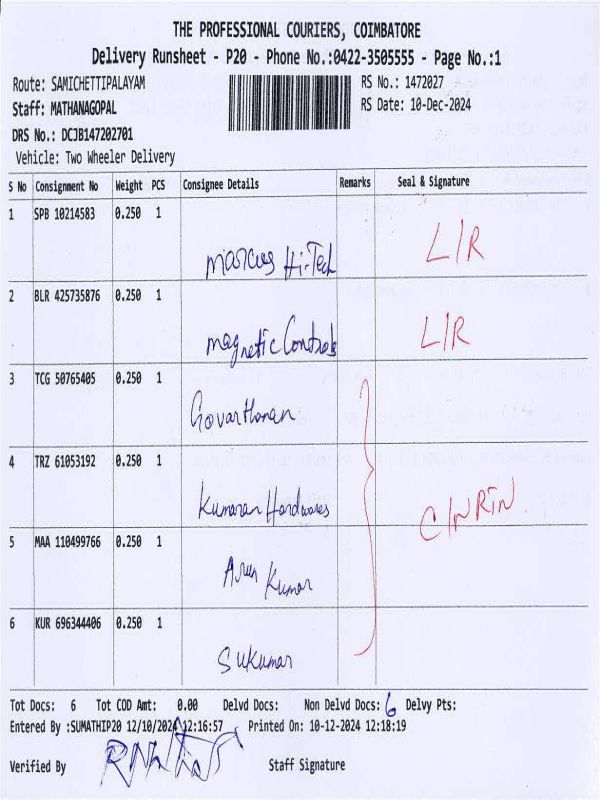 THE PROFESSIONAL COURIERS, COIMBATORE
Delivery Runsheet - P20 - Phone No.:0422-3505555 - Page No.:1
Route: SAMICHETTIPALAYAM RS No.: 1472027
Staff: MATHANAGOPAL RS Date: 10-Dec-2024
DRS No.: DCJB147202701
Vehicle: Two Wheeler Delivery
S No Consignment No Weight PCS Consignee Details Remarks Seal & Signature
1 SPB 10214583 0.250 1 Marcus Hi-Tech L/R
2 BLR 425735876 0.250 1 magnetic Controls L/R
3 TCG 50765405 0.250 1 Govarthanan
4 TRZ 61053192 0.250 1 Kumaran Hardwares C/NRIN
5 MAA 110499766 0.250 1 Arun Kumar
6 KUR 696344406 0.250 1 Sukumar
Tot Docs: 6 Tot COD Amt: 0.00 Delvd Docs: Non Delvd Docs: 6 Delvy Pts:
Entered By :SUMATHIP20 12/10/2024 12:16:57 Printed On: 10-12-2024 12:18:19
Verified By Staff Signature